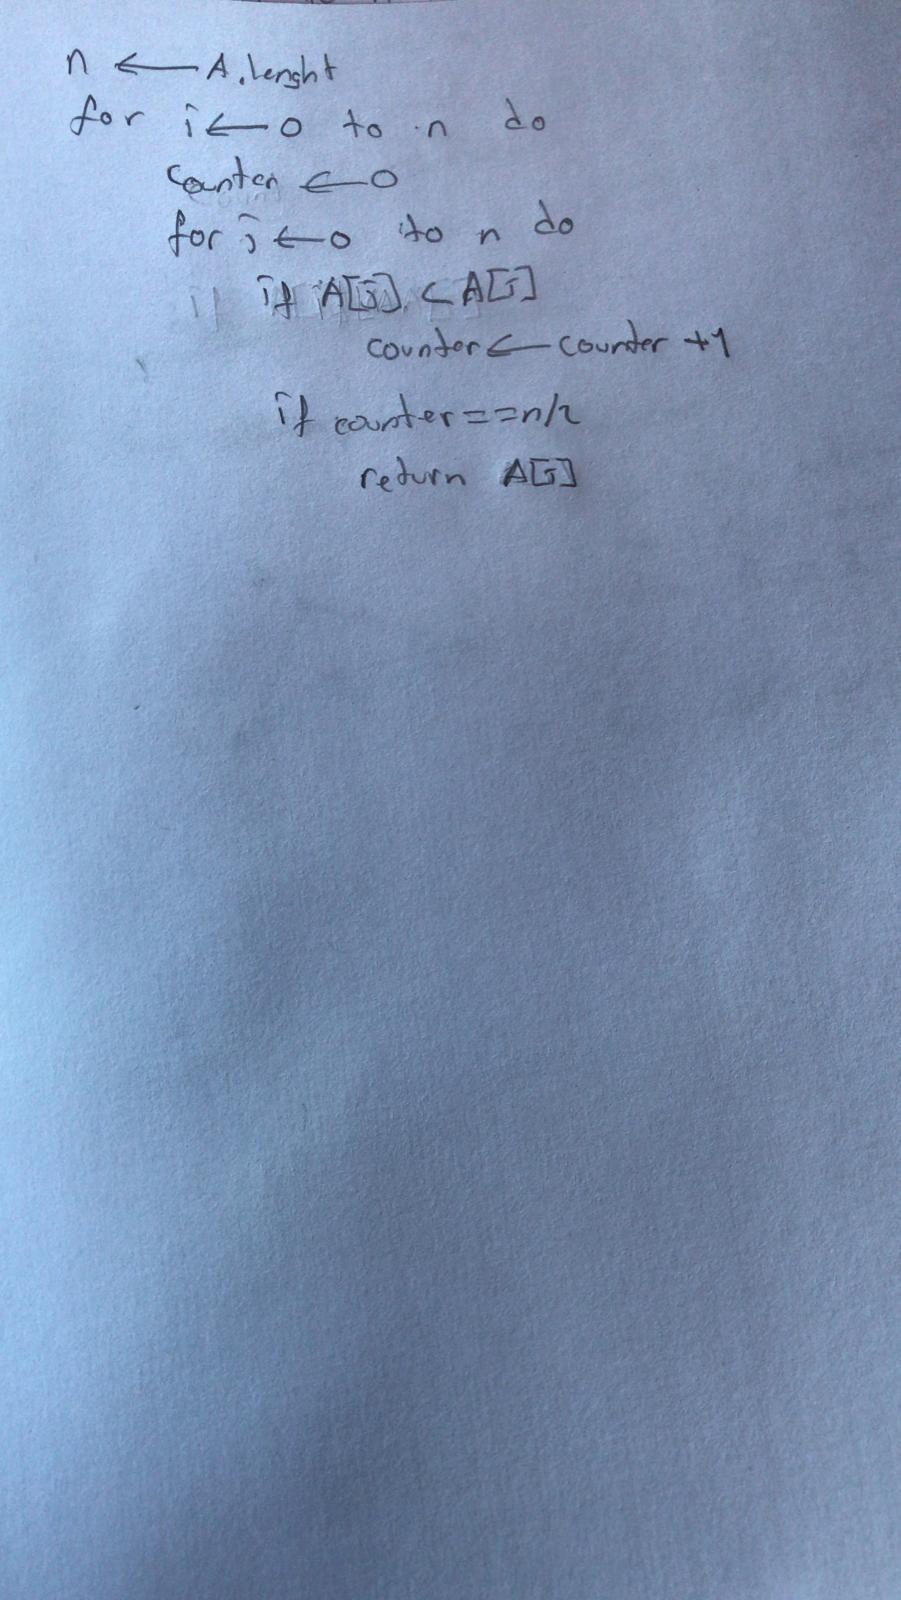 n ← A.lenght
for i ← 0 to n do
counter ← 0
for j ← 0 to n do
if A[j] < A[i]
counter ← counter +1
if counter == n/2
return A[i]